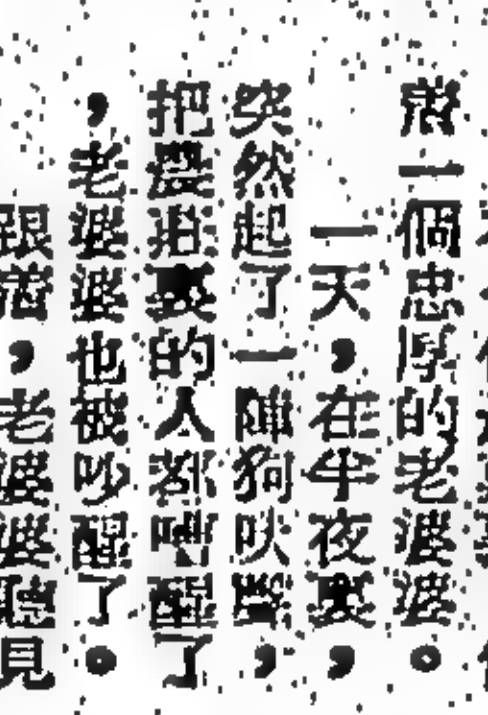 一個忠厚的老婆婆。
一天，在半夜裏，
突然起了一陣狗吠聲，
把農莊裏的人都嘈醒了
，老婆婆也被吵醒了。
跟着，老婆婆聽見